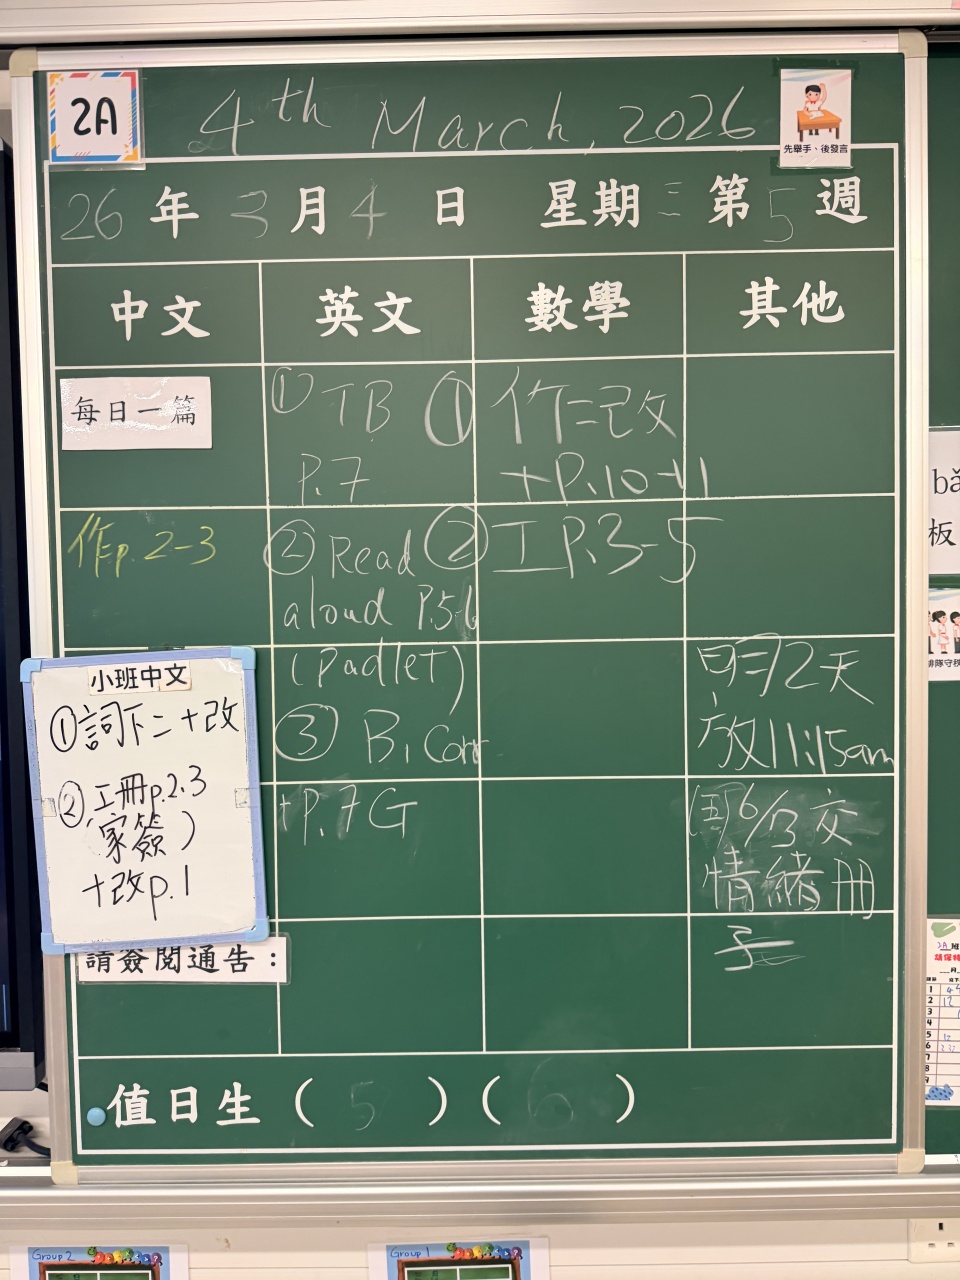 2A
4th March, 2026
先舉手、後發言
26年3月4日 星期三 第5週
中文 英文 數學 其他
每日一篇
作p.2-3
小班中文
①詞下二+改
②工冊p.2.3
(家簽)
+改p.1
請簽閱通告：
① TB
P.7
② Read
aloud P.5-6
(Padlet)
③ B, Corr
+P.7G
① 作二改
+P.10-11
② 工P.3-5
明天
放11:15am
交
情緒冊
子
值日生（5）（6）
bǎ
板
排隊守秩
2A班
1
2
3
4
5
6
7
8
Group 2
Group 1